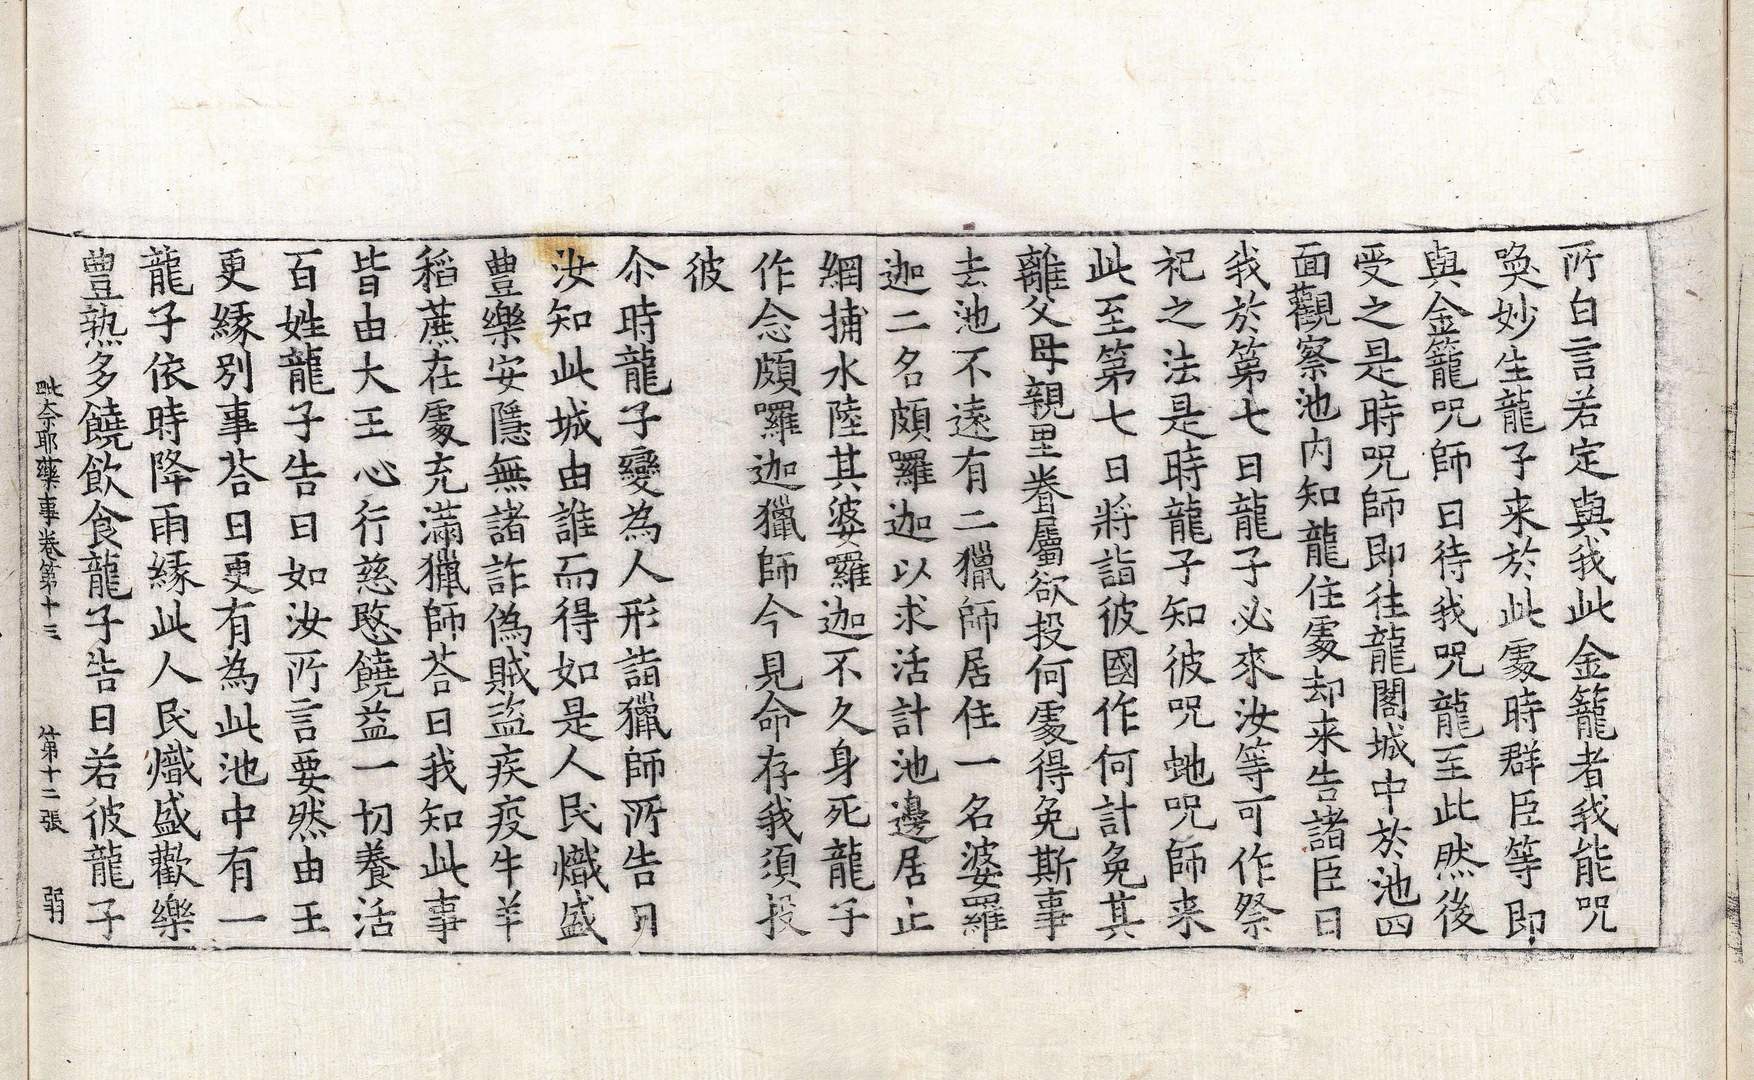 所白言若定與我此金籠者我能呪
喚妙生龍子来於此處時群臣等即
與金籠呪師曰待我呪龍至此然後
受之是時呪師即往龍閣城中於池四
面觀察池内知龍住處却来告諸臣曰
我於第七日龍子必來汝等可作祭
祀之法是時龍子知彼呪虵呪師来
此至第七日將詣彼國作何計免其
離父母親里眷屬欲投何處得免斯事
去池不遠有二獵師居住一名婆羅
迦二名頗囉迦以求活計池邊居止
網捕水陸其婆囉迦不久身死龍子
作念頗囉迦獵師今見命存我須投
彼
尒時龍子變為人形詣獵師所告曰
汝知此城由誰而得如是人民熾盛
豊樂安隱無諸詐偽賊盗疾疫牛羊
稻蔗在處充滿獵師荅曰我知此事
皆由大王心行慈愍饒益一切養活
百姓龍子告曰如汝所言要然由王
更緣別事荅曰更有為此池中有一
龍子依時降雨緣此人民熾盛歡樂
豊熟多饒飲食龍子告曰若彼龍子
毗奈耶藥事卷第十三 第十二張 弱